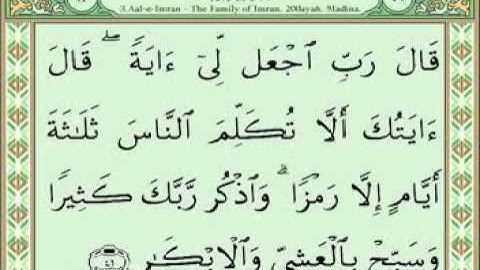 3.Aal-e-Imran - The Family of Imran. 200ayah. Madina.
قَالَ رَبِّ ٱجْعَل لِّىٓ ءَايَةً ۖ قَالَ
ءَايَتُكَ أَلَّا تُكَلِّمَ ٱلنَّاسَ ثَلَـٰثَةَ
أَيَّامٍ إِلَّا رَمْزًا ۗ وَٱذْكُر رَّبَّكَ كَثِيرًا
وَسَبِّحْ بِٱلْعَشِىِّ وَٱلْإِبْكَـٰرِ ٤١